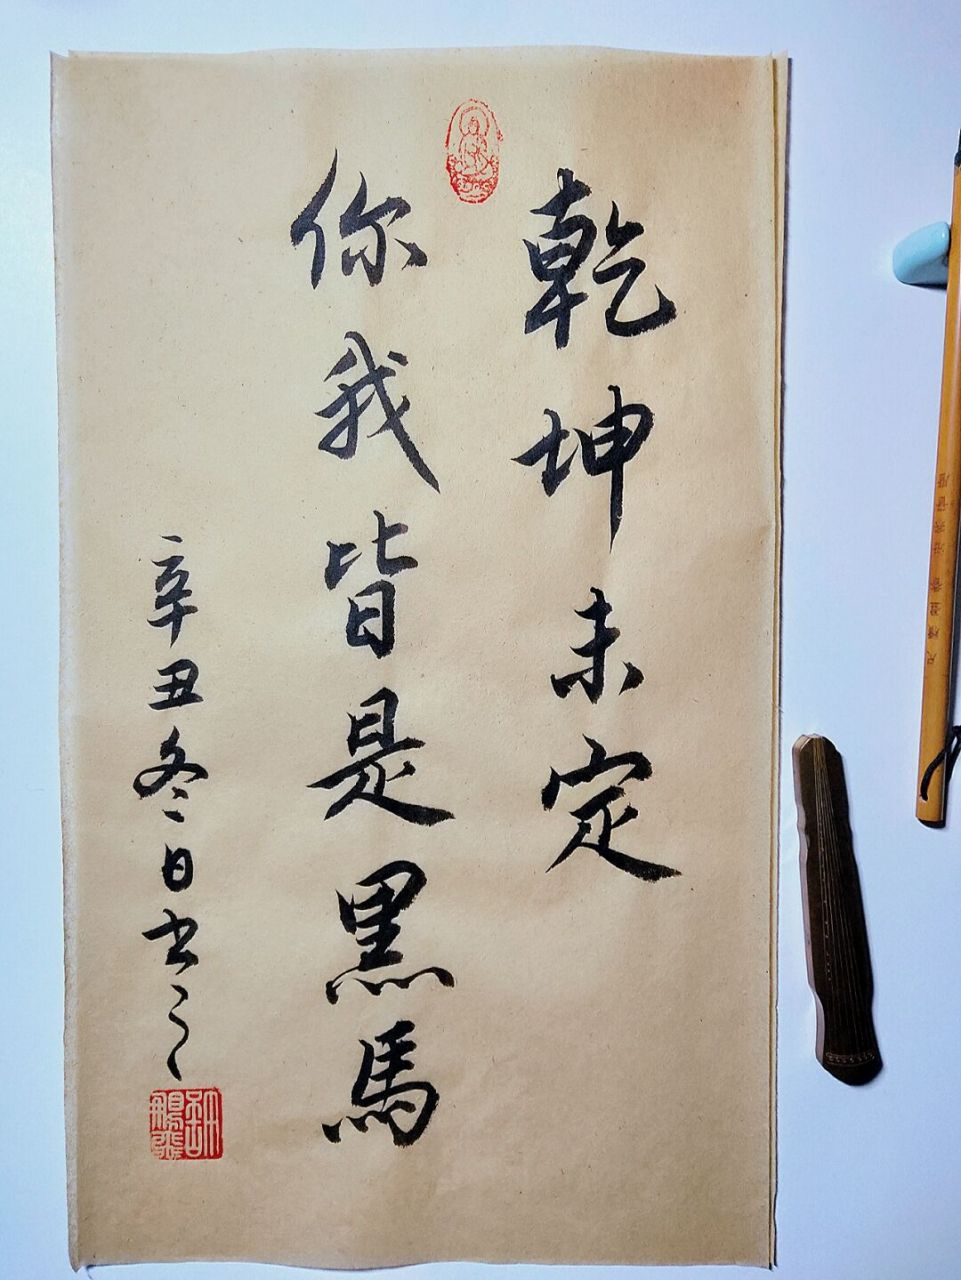 乾坤未定
你我皆是黑馬
辛丑冬日书之